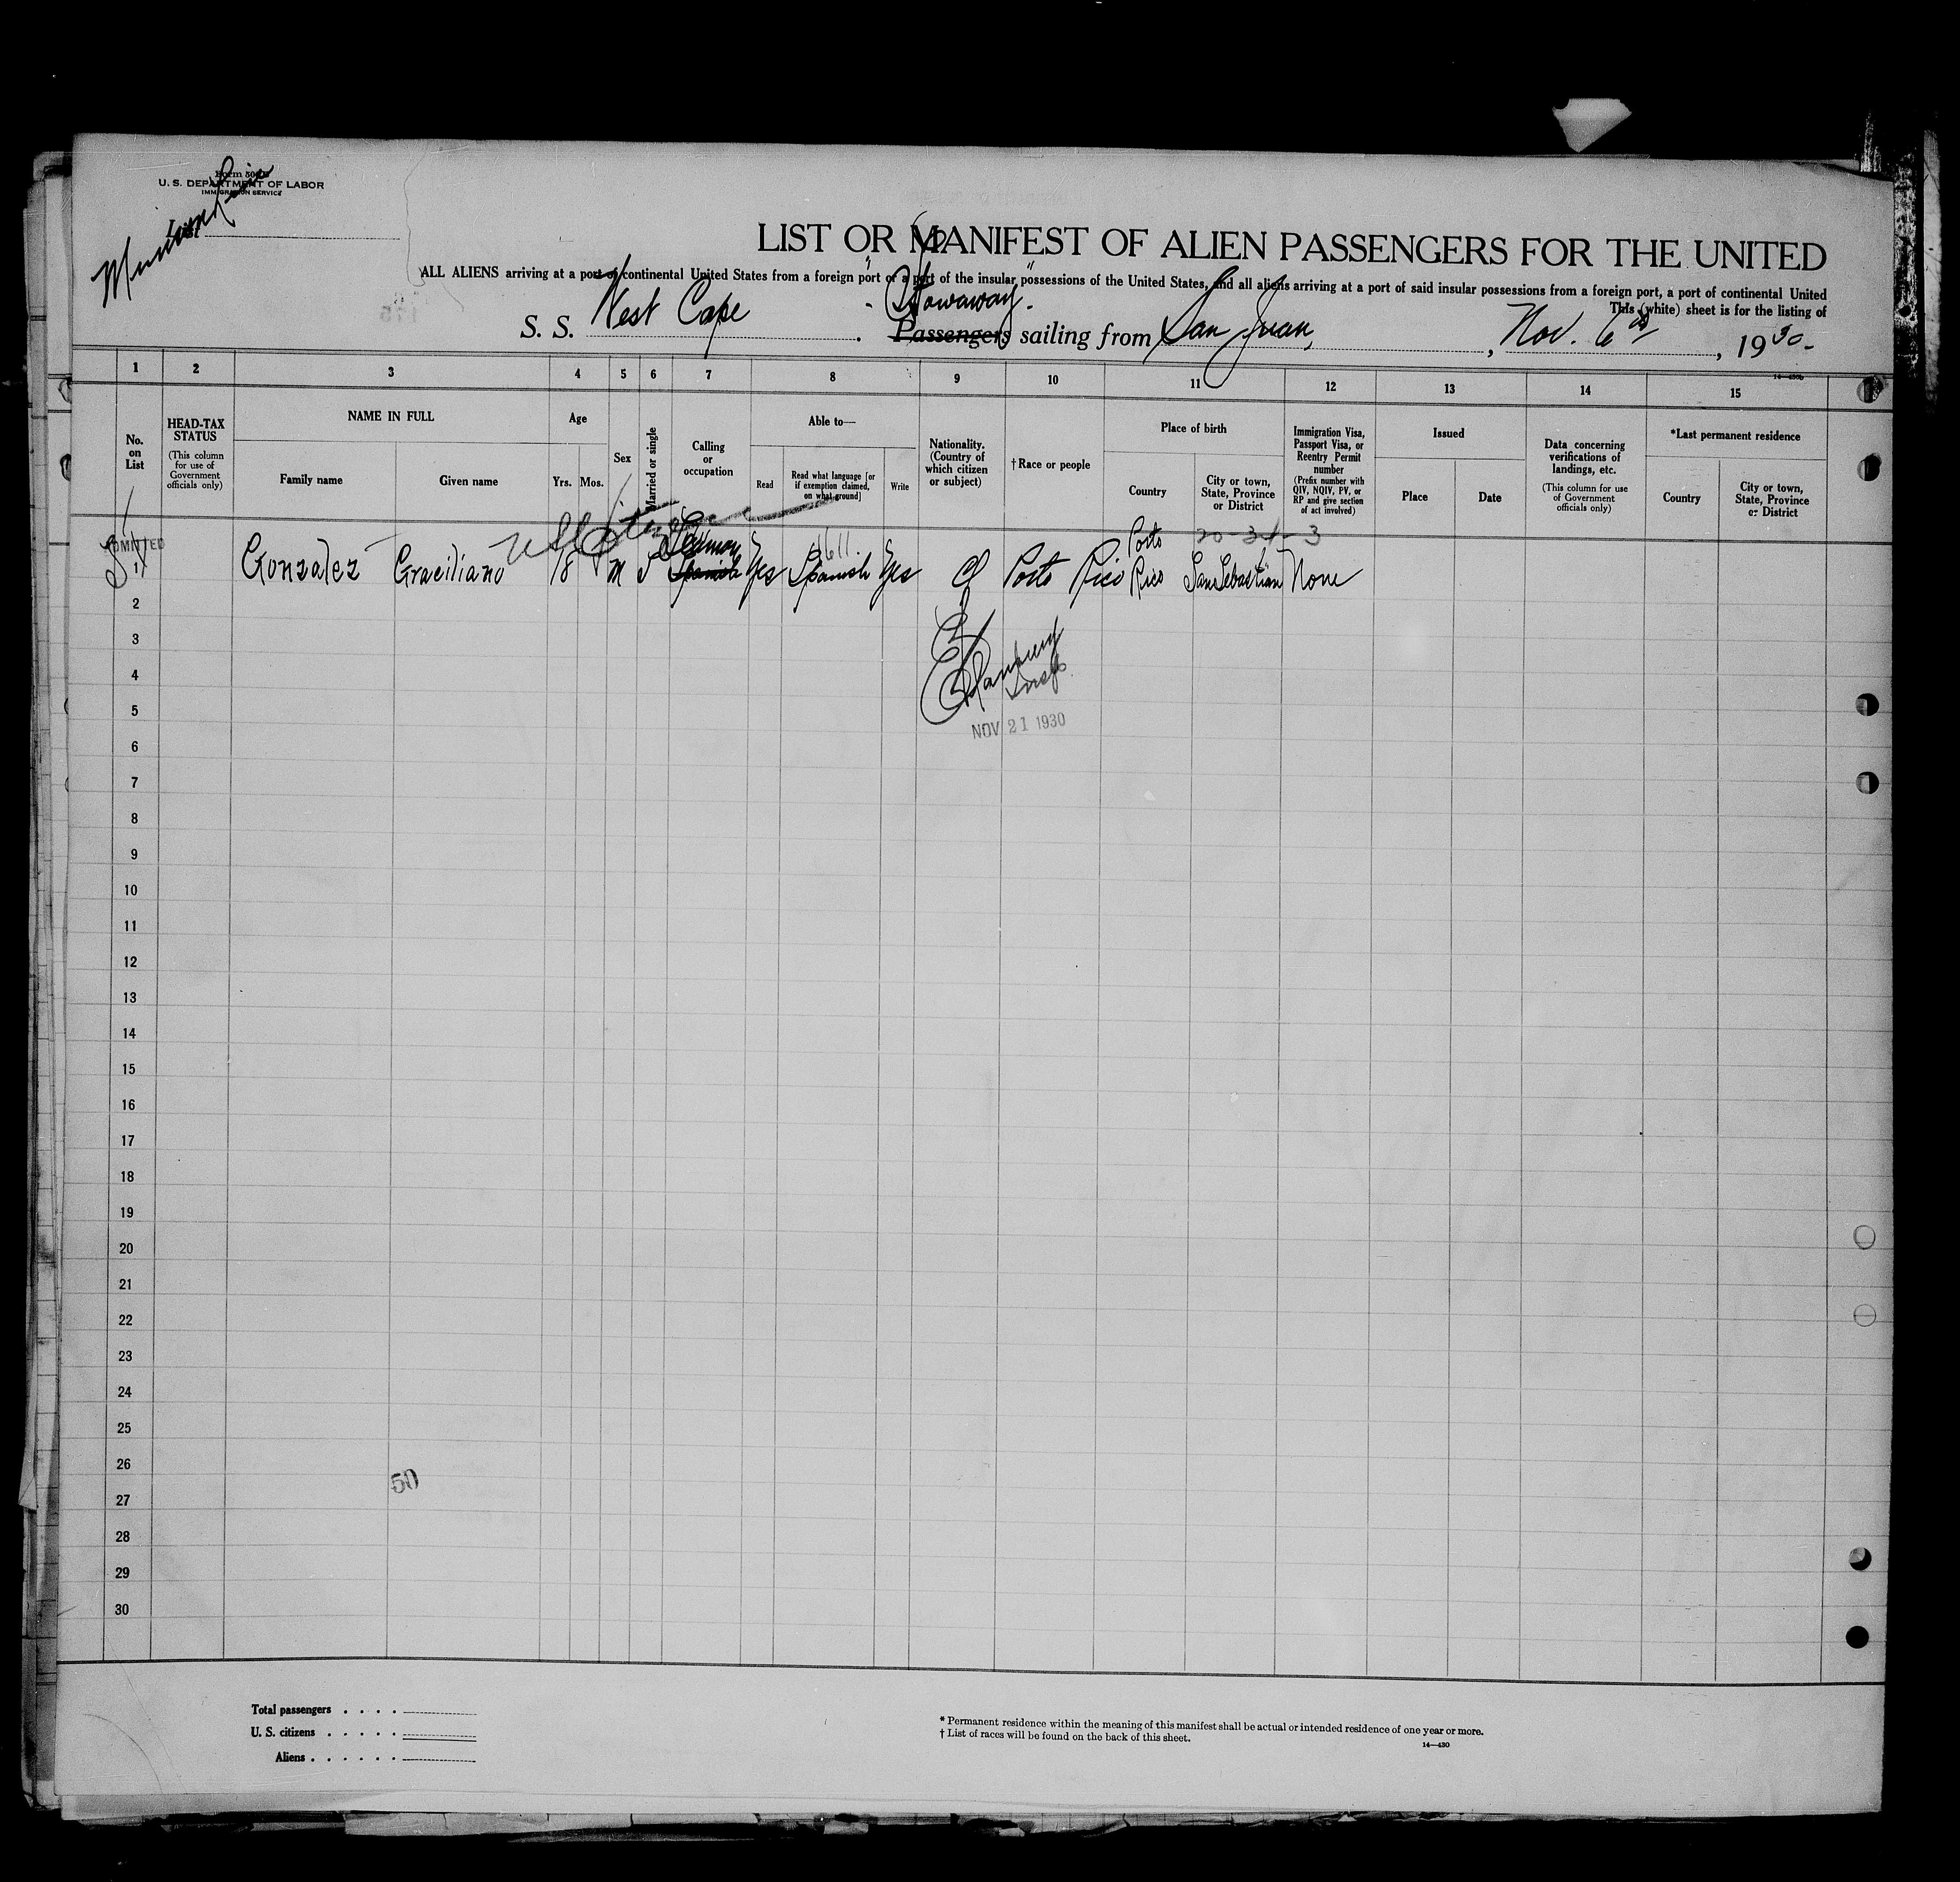 Munson Line
Form 500
U. S. DEPARTMENT OF LABOR
IMMIGRATION SERVICE
List
LIST OR MANIFEST OF ALIEN PASSENGERS FOR THE UNITED
ALL ALIENS arriving at a port of continental United States from a foreign port or a port of the insular possessions of the United States, and all aliens arriving at a port of said insular possessions from a foreign port, a port of continental United
This (white) sheet is for the listing of
"Stowaway".
S. S. West Cape. Passengers sailing from San Juan, , Nov. 6th , 1930.
1 2 3 4 5 6 7 8 9 10 11 12 13 14 15
No. on List
HEAD-TAX STATUS
(This column for use of Government officials only)
NAME IN FULL
Family name
Given name
Age
Yrs.
Mos.
Sex
Married or single
Calling or occupation
Able to—
Read
Read what language [or if exemption claimed, on what ground]
Write
Nationality. (Country of which citizen or subject)
† Race or people
Place of birth
Country
City or town, State, Province or District
Immigration Visa, Passport Visa, or Reentry Permit number
(Prefix number with QIV, NQIV, PV, or RP and give section of act involved)
Issued
Place
Date
Data concerning verifications of landings, etc.
(This column for use of Government officials only)
*Last permanent residence
Country
City or town, State, Province or District
ADMITTED
20-31-3
1 Gonzalez Graciliano 18 M S Seaman Spanish Yes Spanish Yes Porto Rico Porto Rico San Sebastian None
2
3
4
Insp.
5
NOV 21 1930
6
7
8
9
10
11
12
13
14
15
16
17
18
19
20
21
22
23
24
25
26
50
27
28
29
30
Total passengers . . . .
U. S. citizens . . . . .
Aliens . . . . . .
* Permanent residence within the meaning of this manifest shall be actual or intended residence of one year or more.
† List of races will be found on the back of this sheet.
14—430